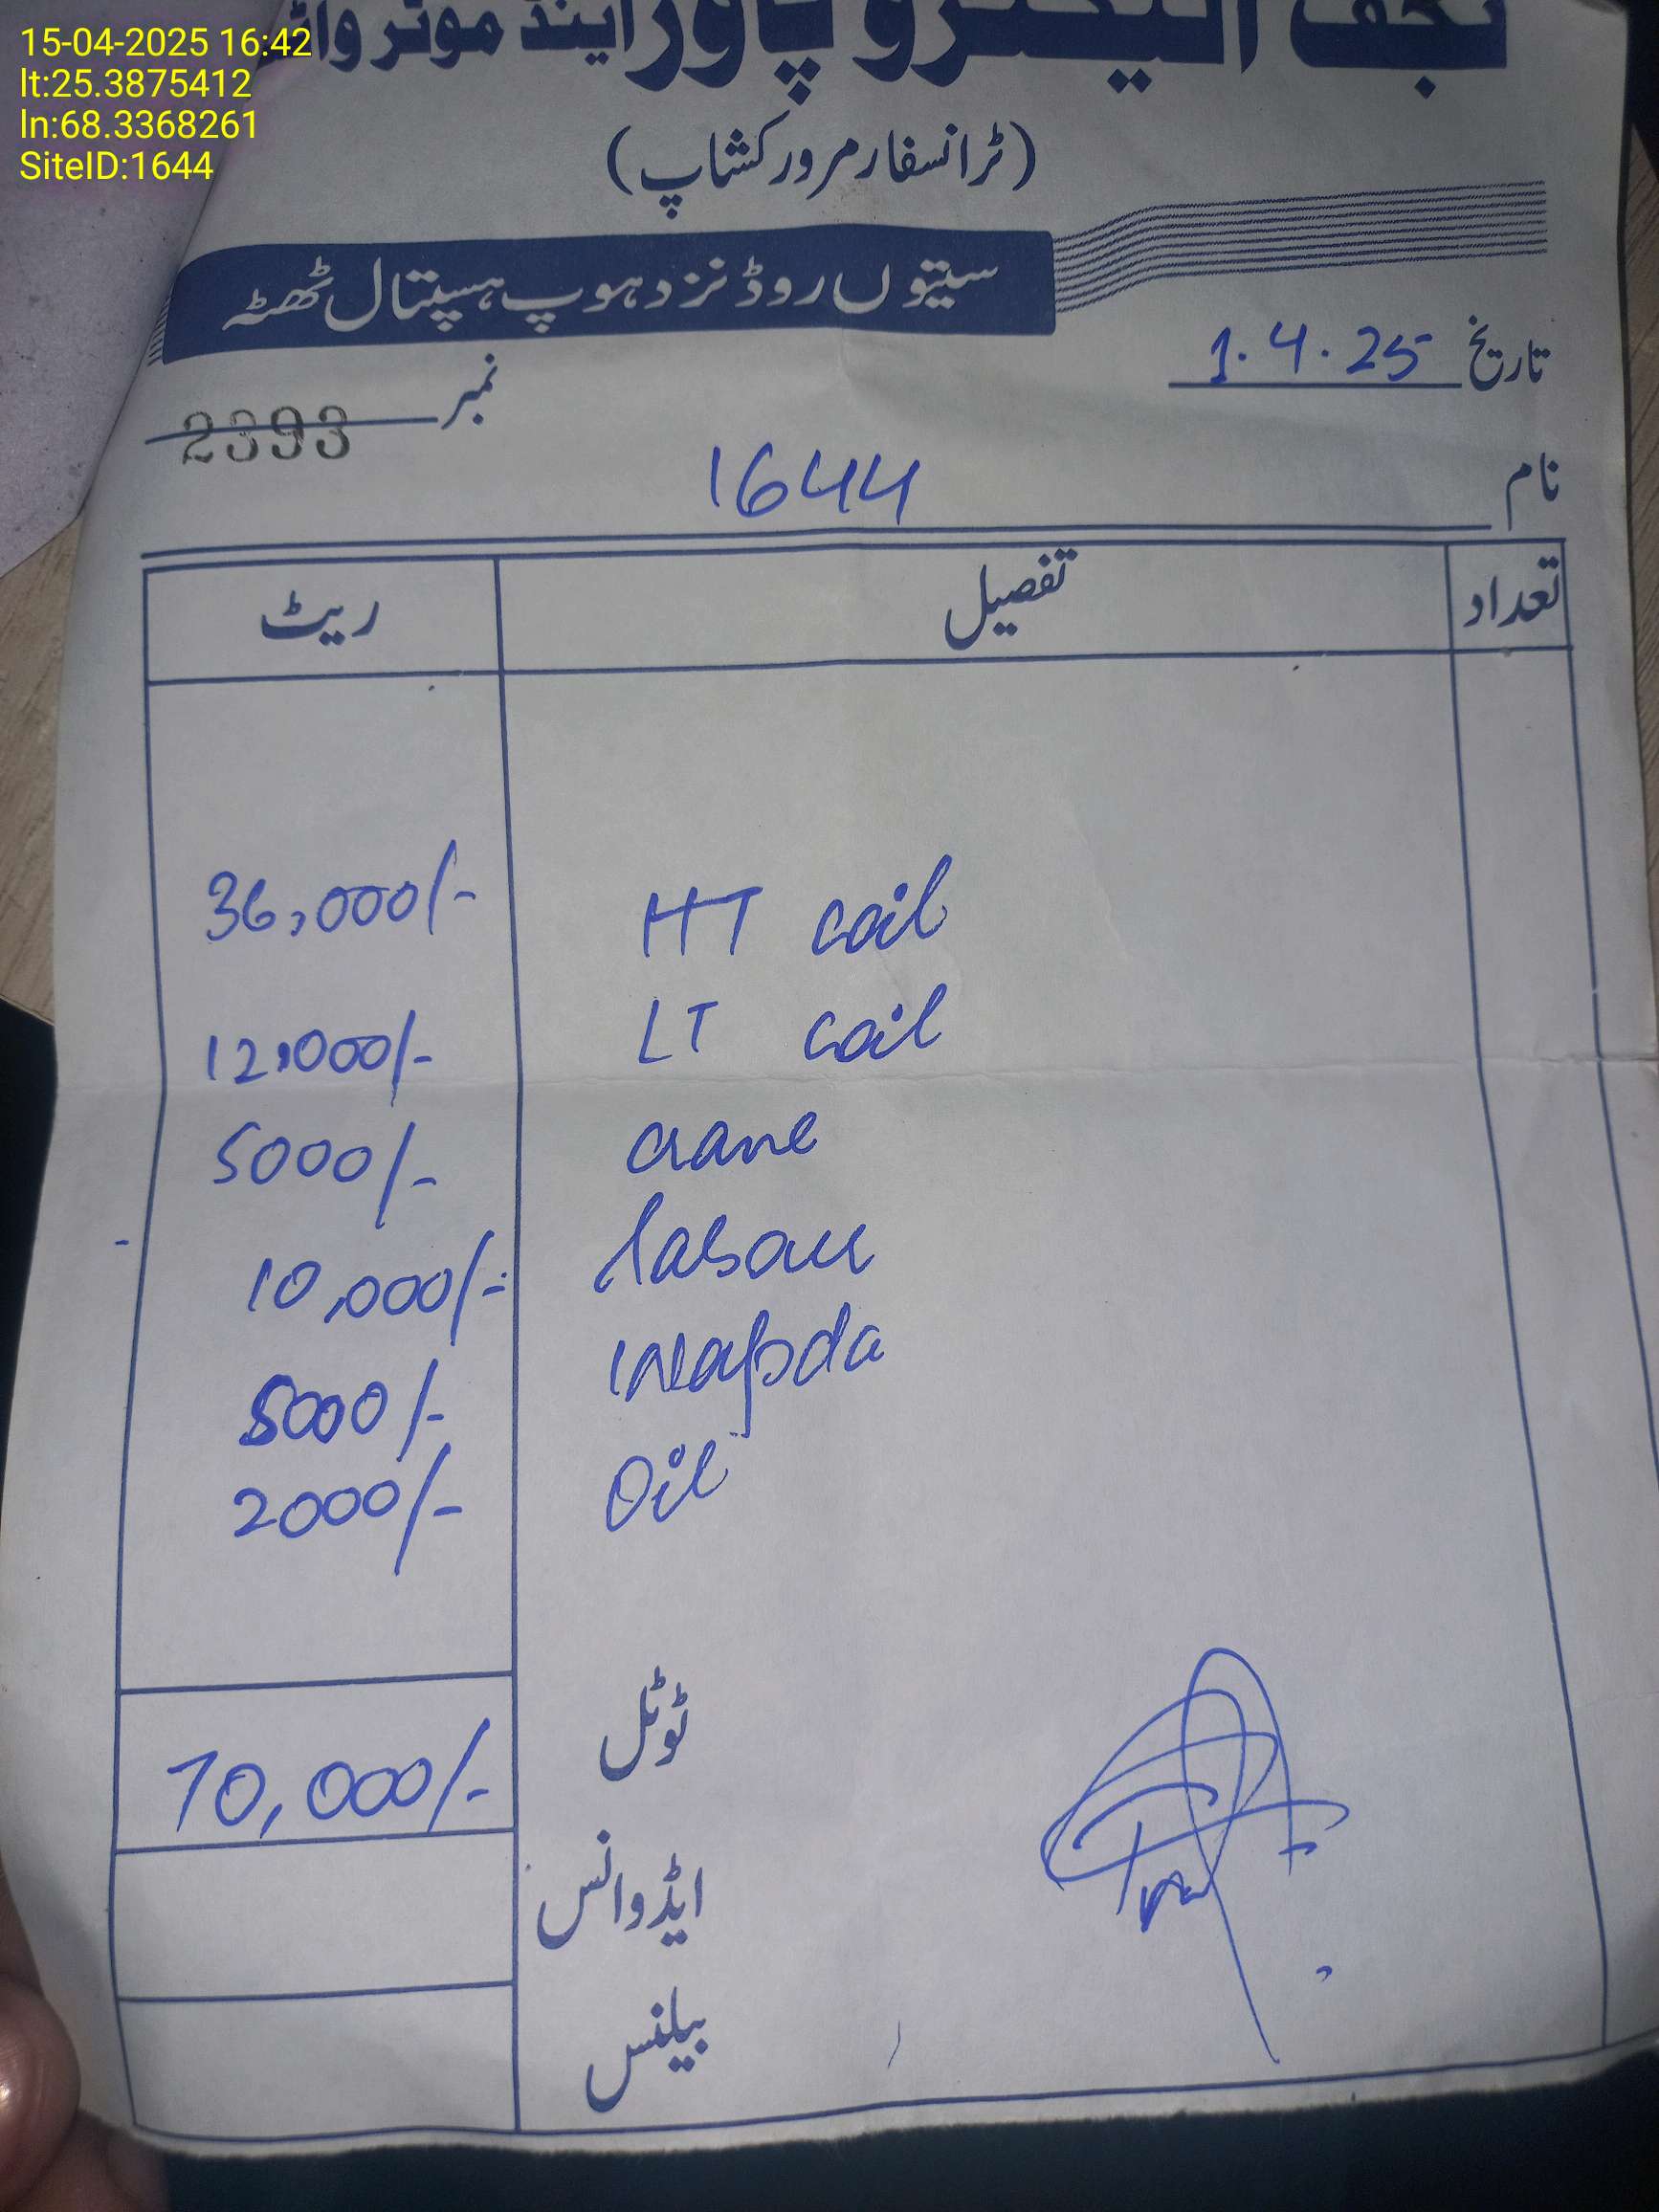 15-04-2025 16:42
lt:25.3875412
ln:68.3368261
SiteID:1644
نجف الیکٹرو پاور اینڈ موٹر
(ٹرانسفارمرورکشاپ)
سیتوں روڈ نزد ہوپ ہسپتال ٹھٹہ
تاریخ 1.4.25
نمبر 2393
نام 1644
تعداد تفصیل ریٹ
HT coil 36,000/-
LT coil 12,000/-
crane 5000/-
labour 10,000/-
wapda 5000/-
Oil 2000/-
ٹوٹل 70,000/-
ایڈوانس
بیلنس